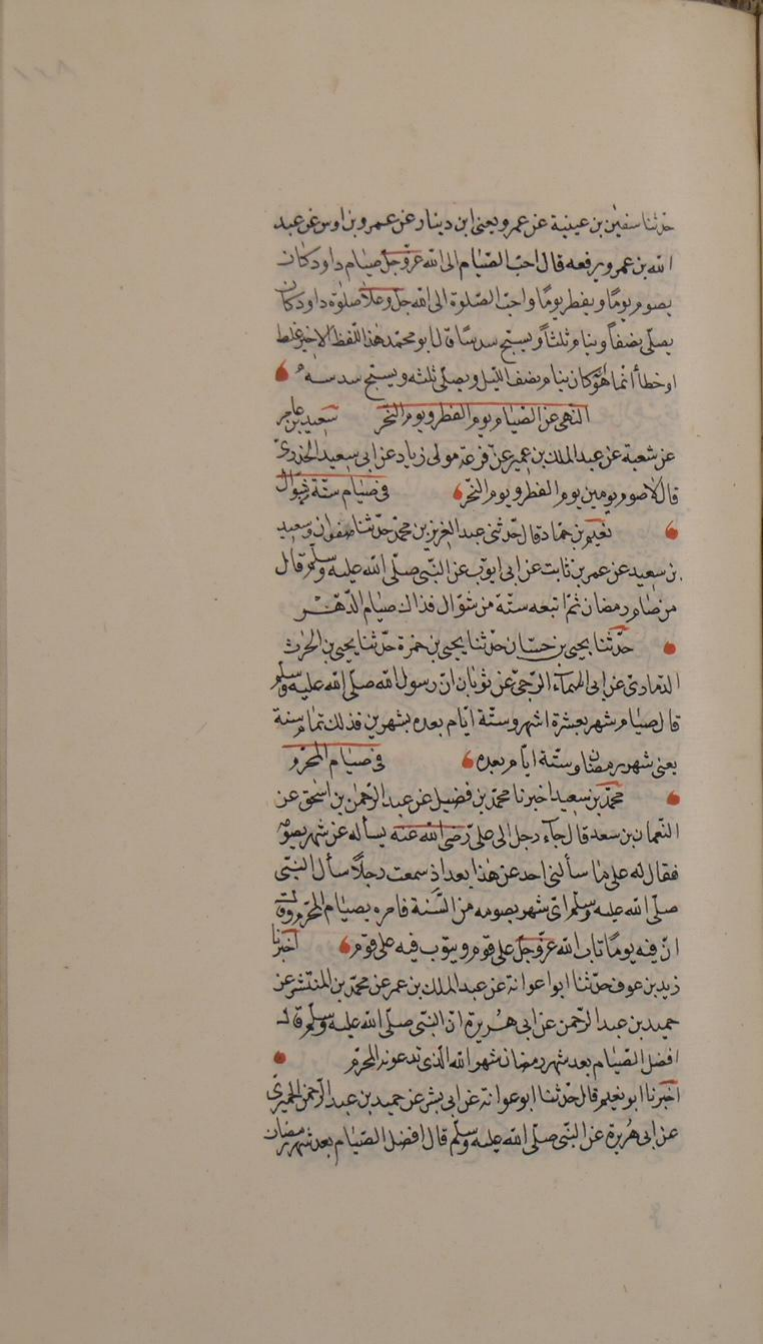 حدثنا سفين بن عيينة عن عمرو يعنى ابن دينار عن عمرو بن اوس عن عبد
الله بن عمرو يرفعه قال احبّ الصّيام الى الله عزّوجلّ صيام داود كان
يصوم يومًا ويفطر يومًا واحبّ الصّلوة الى الله جلّ وعلا صلوٰة داود كان
يصلّى نصفاً وينام ثلثاً ويسبّح سدسًا قال ابو محمّد هذا اللّفظ الاخير غلط
او خطأ انّما هو كان ينام نصف اللّيل ويصلّى ثلثه ويسبّح سدسه
النّهى عن الصّيام يوم الفطر ويوم النّحر سعيد بن عامر
عن شعبة عن عبد الملك بن عمير عن قزعة مولى زياد عن ابى سعيد الخدرىّ
قال لا صوم يومين يوم الفطر ويوم النّحر فى صيام ستّة شوّال
نعيم بن حمّاد قال حدّثنى عبد العزيز بن محمّد حدّثنا صفوان وسعيد
بن سعيد عن عمر بن ثابت عن ابى ايوّب عن النّبى صلّى الله عليه وسلّم قال
من صام رمضان ثمّ اتبعه ستّة من شوّال فذاك صيام الدّهر
حدّثنا يحيى بن حسّان حدّثنا يحيى بن حمزة حدّثنا يحيى بن الحرث
الذمارىّ عن ابى اسمآء الرّحبىّ عن ثوبان انّ رسول الله صلّى الله عليه وسلّم
قال صيام شهر بعشرة اشهر وستّة ايّام بعده بشهرين فذلك تمام سنة
يعنى شهر رمضان وستّة ايّام بعده فى صيام المحرّم
محمّد بن سعيد اخبرنا محمّد بن فضيل عن عبد الرّحمٰن بن اسٰحق عن
النّعمان بن سعد قال جآء رجل الى علىّ رضى الله عنه يسأله عن شهر يصومه
فقال له على ما سألنى احد عن هٰذا بعد اذ سمعت رجلاً سأل النّبىّ
صلّى الله عليه وسلّم اىّ شهر يصومه من السّنة فامره بصيام المحرّم وقال
انّ فيه يومًا تاب الله عزّوجلّ على قوم ويتوب فيه على قوم اخبرنا
زيد بن عوف حدّثنا ابو عوانة عن عبد الملك بن عمر عن محمّد بن المنتشر عن
حميد بن عبد الرّحمن عن ابى هُريرة انّ النّبى صلّى الله عليه وسلّم قال
افضل الصّيام بعد شهر رمضان شهر الله الّذى تدعونه المحرّم
اخبرنا ابو نعيم قال حدّثنا ابو عوانة عن ابى بشر عن حميد بن عبد الرّحمن الحميرىّ
عن ابى هُريرة عن النّبى صلّى الله عليه وسلّم قال افضل الصّيام بعد شهر رمضان